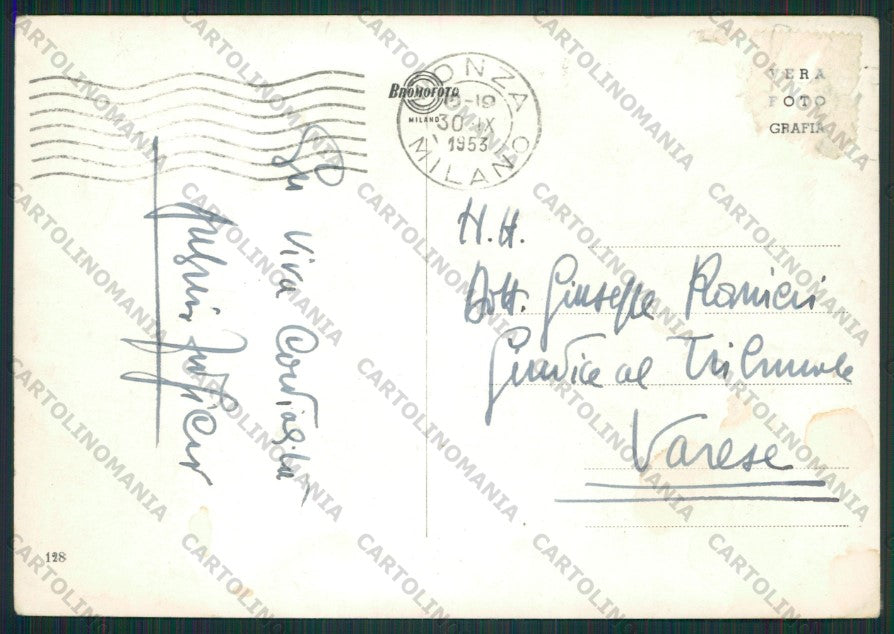 BROMOFOTO
MILANO
MONZA
18-19
30 IX
1953
MILANO
VERA
FOTO
GRAFIA
viva Cordialità
H. H.
Dott. Giuseppe Ranieri
Giudice al Tribunale
Varese
128
CARTOLINOMANIA